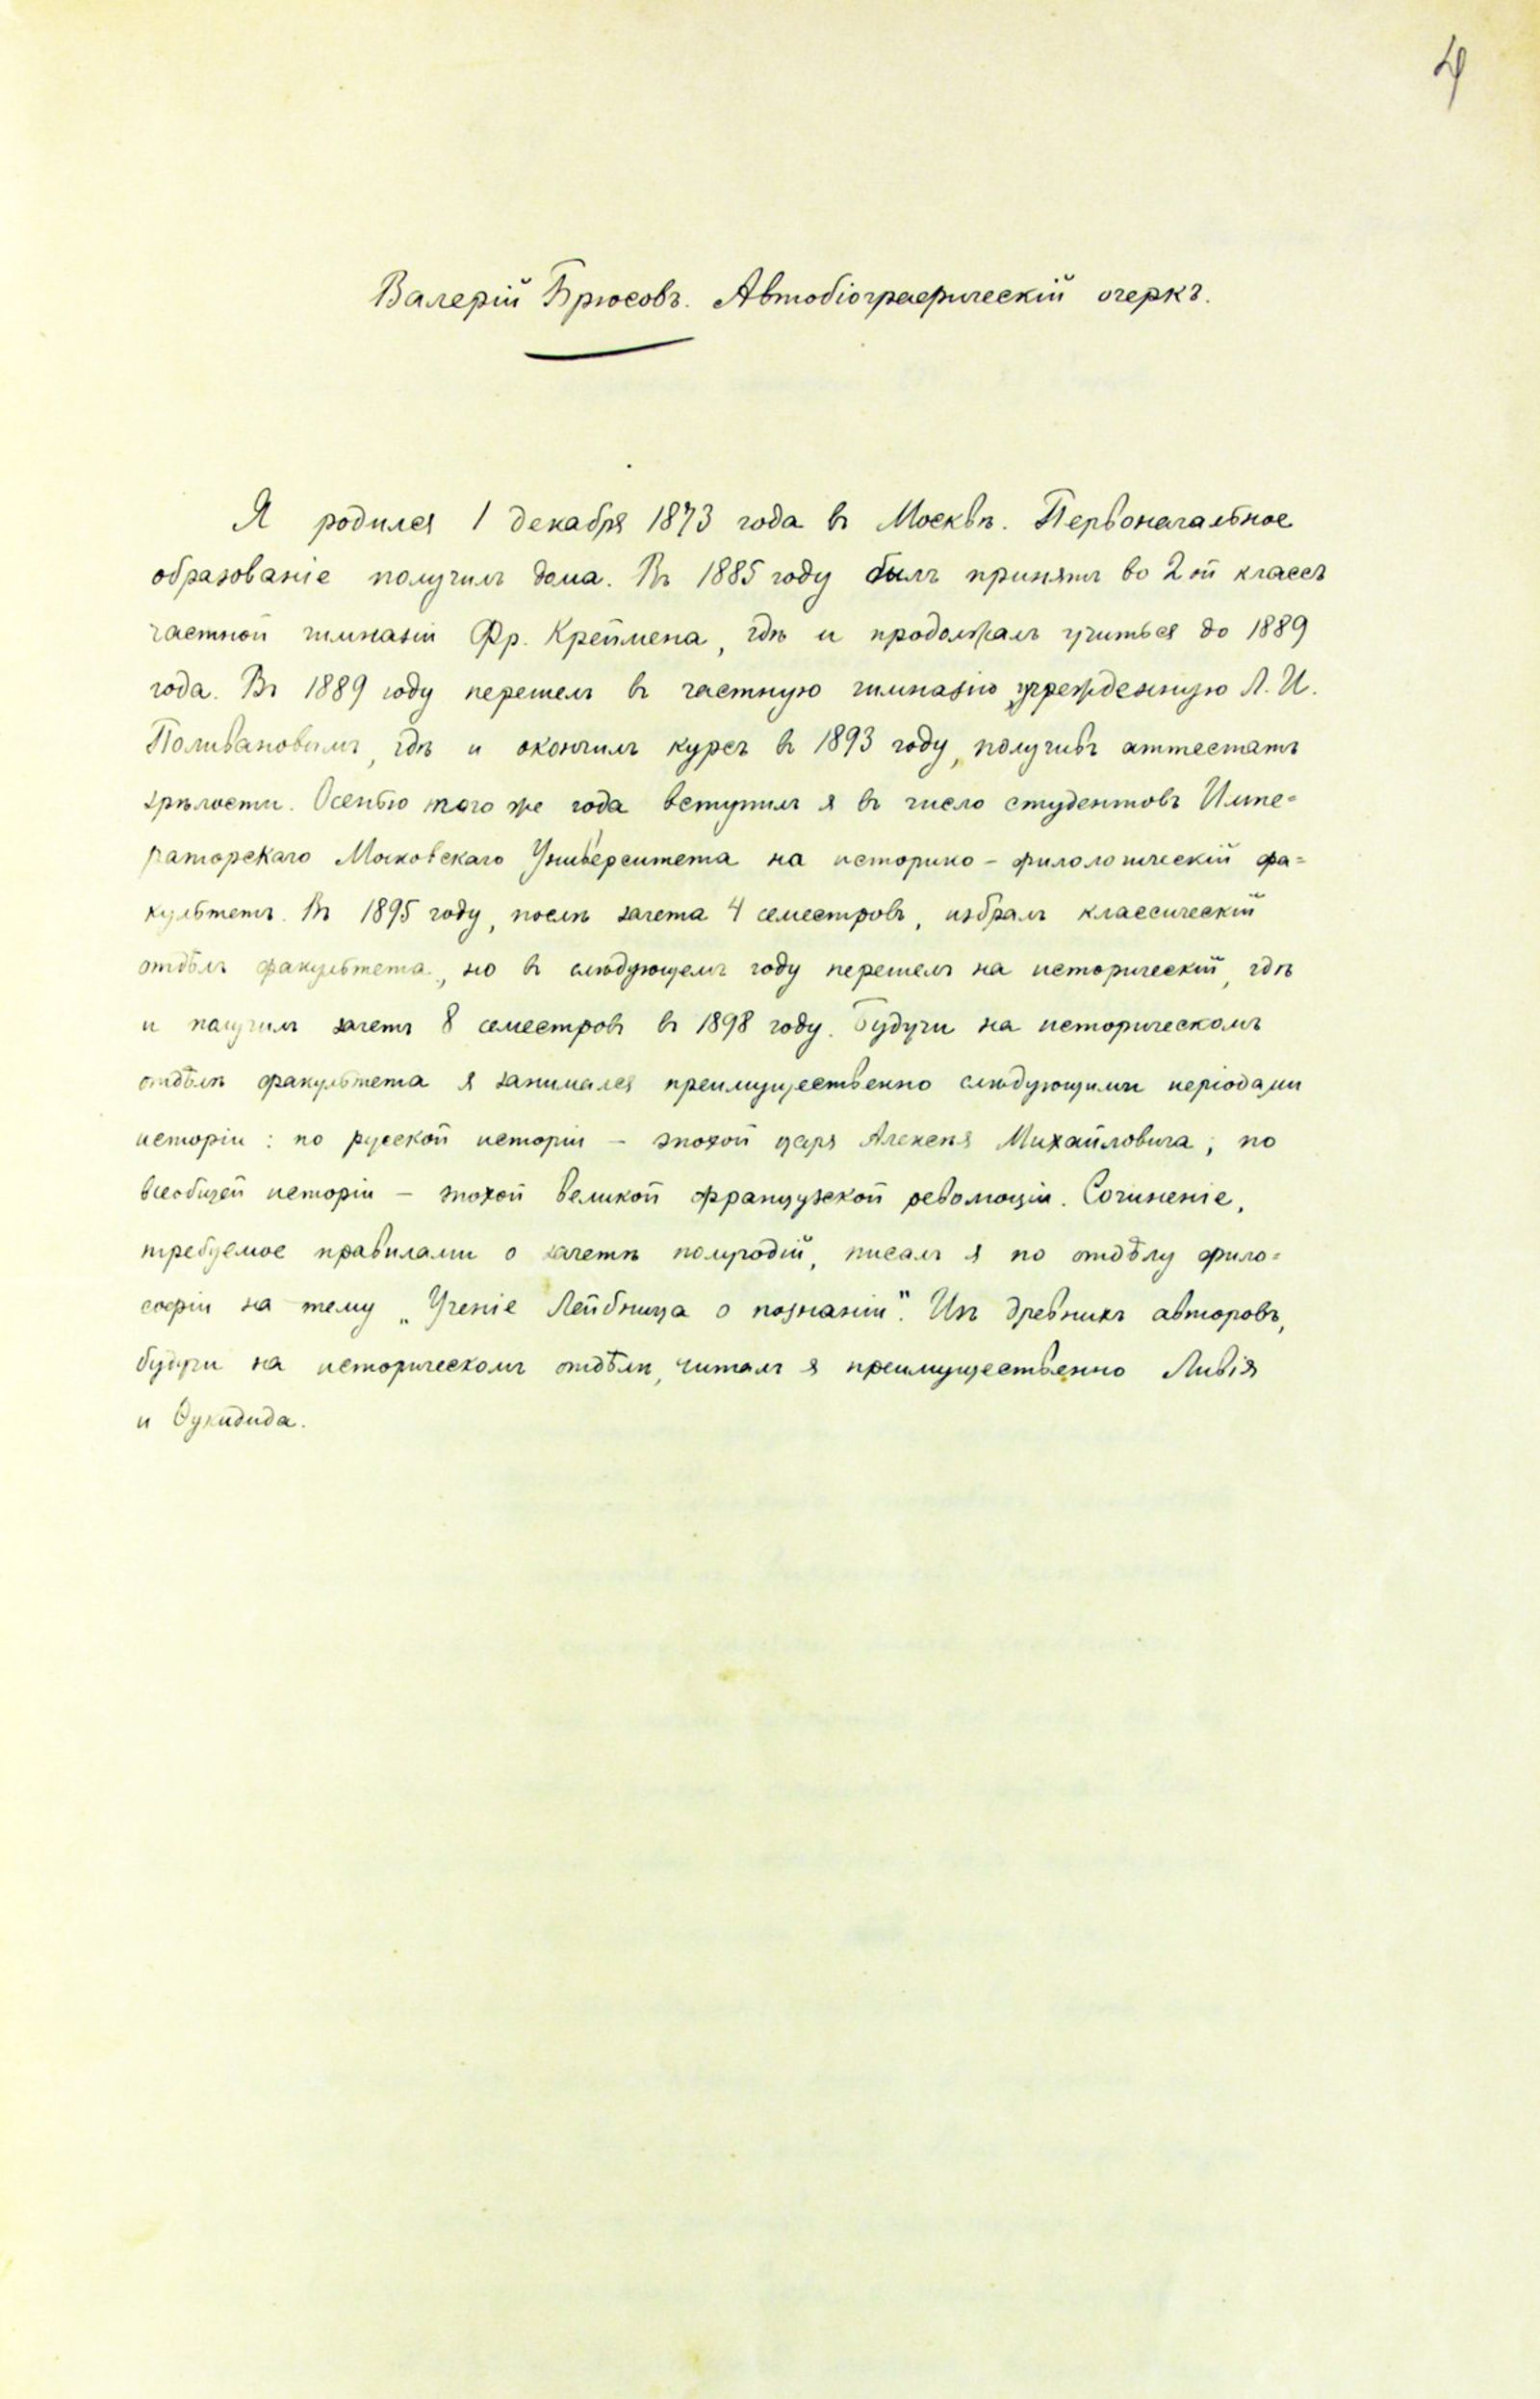 4
Валерій Брюсовъ. Автобіографическій очеркъ.
Я родился 1 декабря 1873 года въ Москвѣ. Первоначальное
образованіе получилъ дома. Въ 1885 году былъ принятъ во 2ой классъ
частной гимназіи Фр. Креймена, гдѣ и продолжалъ учиться до 1889
года. Въ 1889 году перешелъ въ частную гимназію учрежденную Л. И.
Поливановымъ, гдѣ и окончилъ курсъ въ 1893 году, получивъ аттестатъ
зрѣлости. Осенью того же года вступилъ я въ число студентовъ Импе=
раторскаго Московскаго Университета на историко-филологическій фа=
культетъ. Въ 1895 году, послѣ зачета 4 семестровъ, избралъ классическій
отдѣлъ факультета, но въ слѣдующемъ году перешелъ на историческій, гдѣ
и получилъ зачетъ 8 семестровъ въ 1898 году. Будучи на историческомъ
отдѣлѣ факультета я занимался преимущественно слѣдующими періодами
исторіи: по русской исторіи – эпохой царя Алексѣя Михайловича; по
всеобщей исторіи – эпохой великой французской революціи. Сочиненіе,
требуемое правилами о зачетѣ полугодій, писалъ я по отдѣлу фило=
софіи на тему „Ученіе Лейбница о познаніи". Изъ древнихъ авторовъ,
будучи на историческомъ отдѣлѣ, читалъ я преимущественно Ливія
и Ѳукидида.